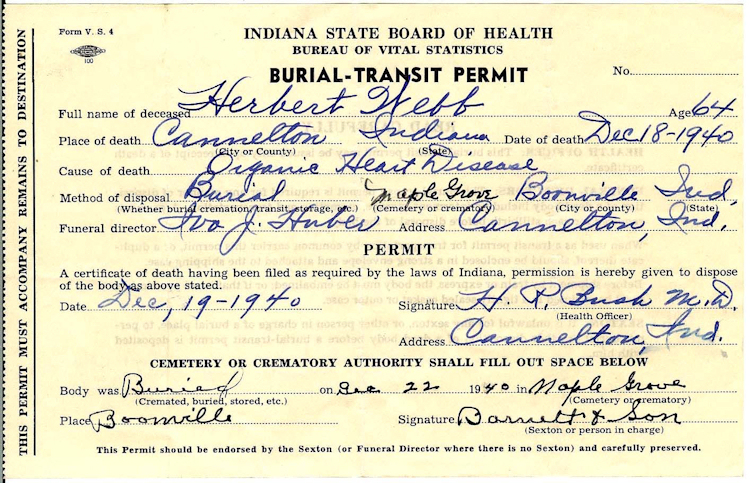 Form V. S. 4
100
INDIANA STATE BOARD OF HEALTH
BUREAU OF VITAL STATISTICS
BURIAL-TRANSIT PERMIT
No.
Full name of deceased Herbert Webb Age 64
Place of death Cannelton Indiana Date of death Dec 18-1940
(City or County) (State)
Cause of death Organic Heart Disease
Method of disposal Burial Maple Grove Boonville Ind,
(Whether burial cremation, transit, storage, etc.) (Cemetery or crematory) (City or county) (State)
Funeral director Ivo J. Huber Address Cannelton, Ind.
PERMIT
A certificate of death having been filed as required by the laws of Indiana, permission is hereby given to dispose
of the body as above stated.
Date Dec, 19-1940 Signature H. P. Bush M.D.
(Health Officer)
Address Cannelton, Ind.
CEMETERY OR CREMATORY AUTHORITY SHALL FILL OUT SPACE BELOW
Body was Buried on Dec 22 1940 in Maple Grove
(Cremated, buried, stored, etc.) (Cemetery or crematory)
Place Boonville Signature Barnett & Son
(Sexton or person in charge)
This Permit should be endorsed by the Sexton (or Funeral Director where there is no Sexton) and carefully preserved.
THIS PERMIT MUST ACCOMPANY REMAINS TO DESTINATION